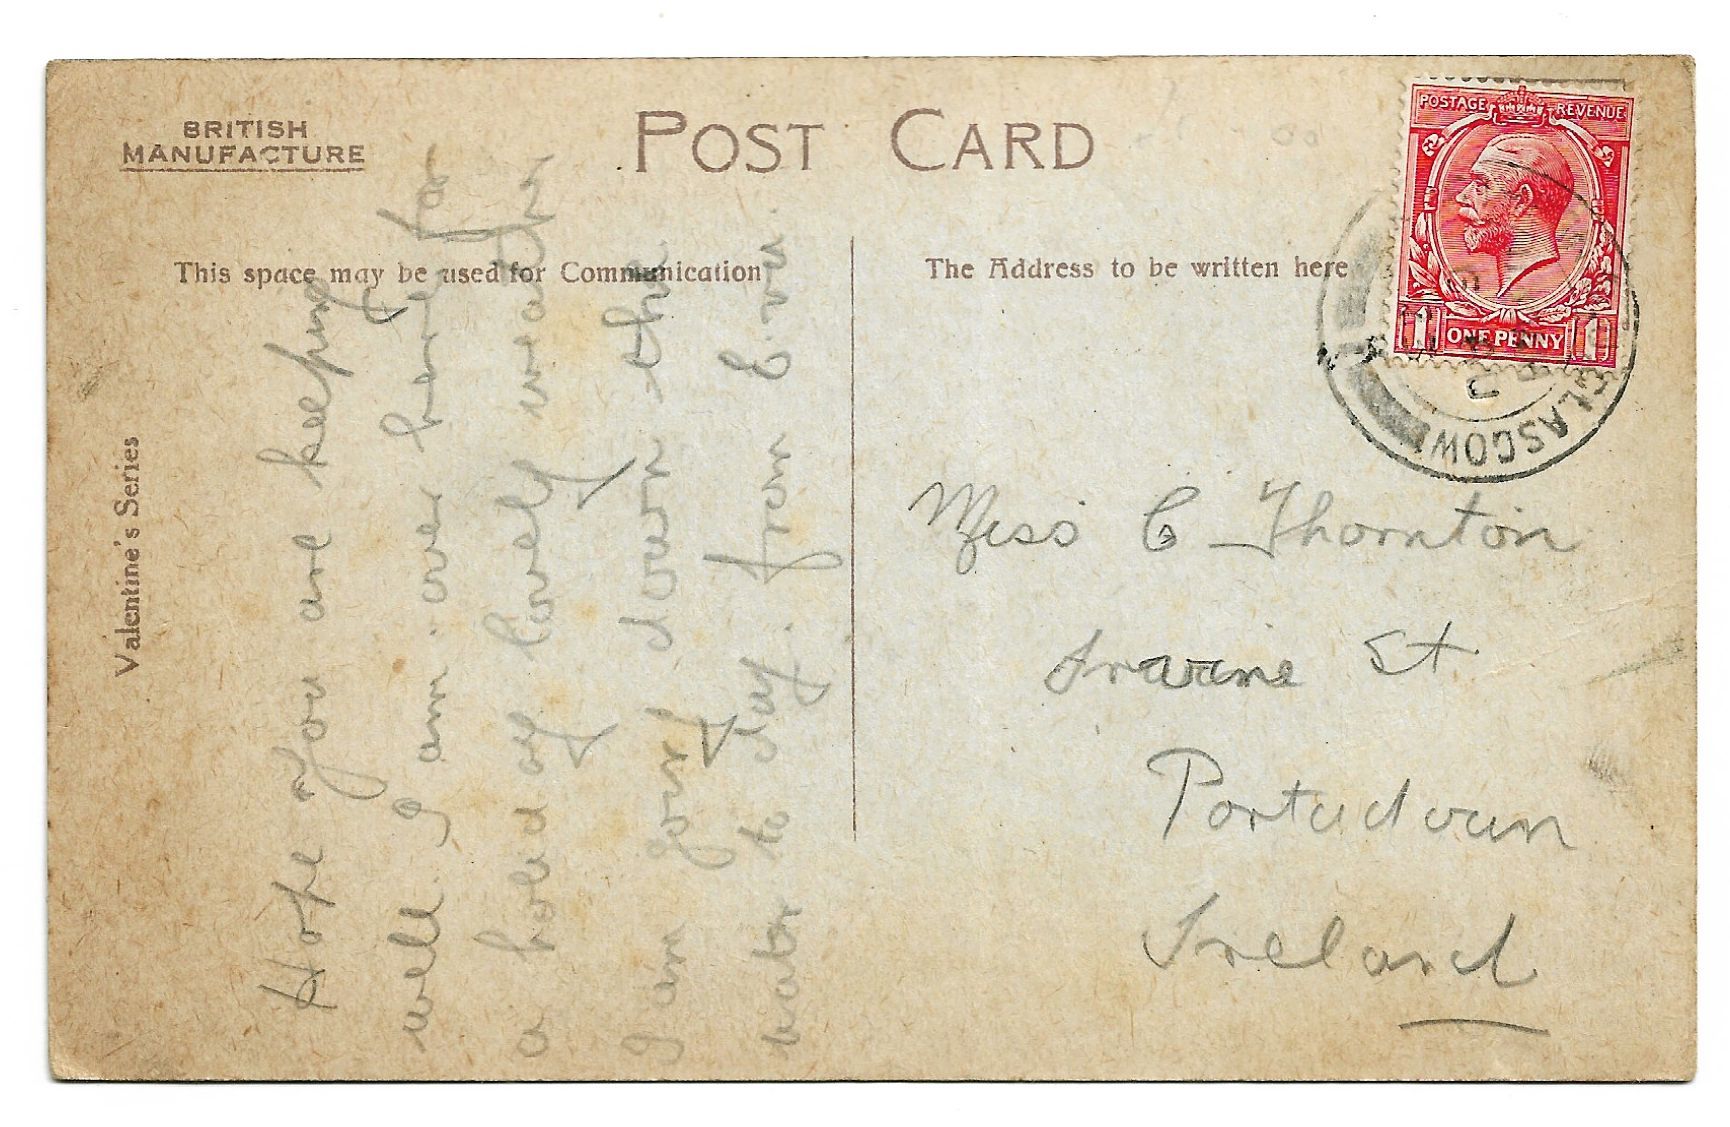 BRITISH
MANUFACTURE
POST CARD
This space may be used for Communication
The Address to be written here
Valentine's Series
POSTAGE REVENUE
1 ONE PENNY 1
GLASGOW
Hope you are keeping
well. I am over here for
a holiday lovely weather
I am going down the
water to day. from E.W.
Miss C Thornton
Irvine St
Portadown
Ireland